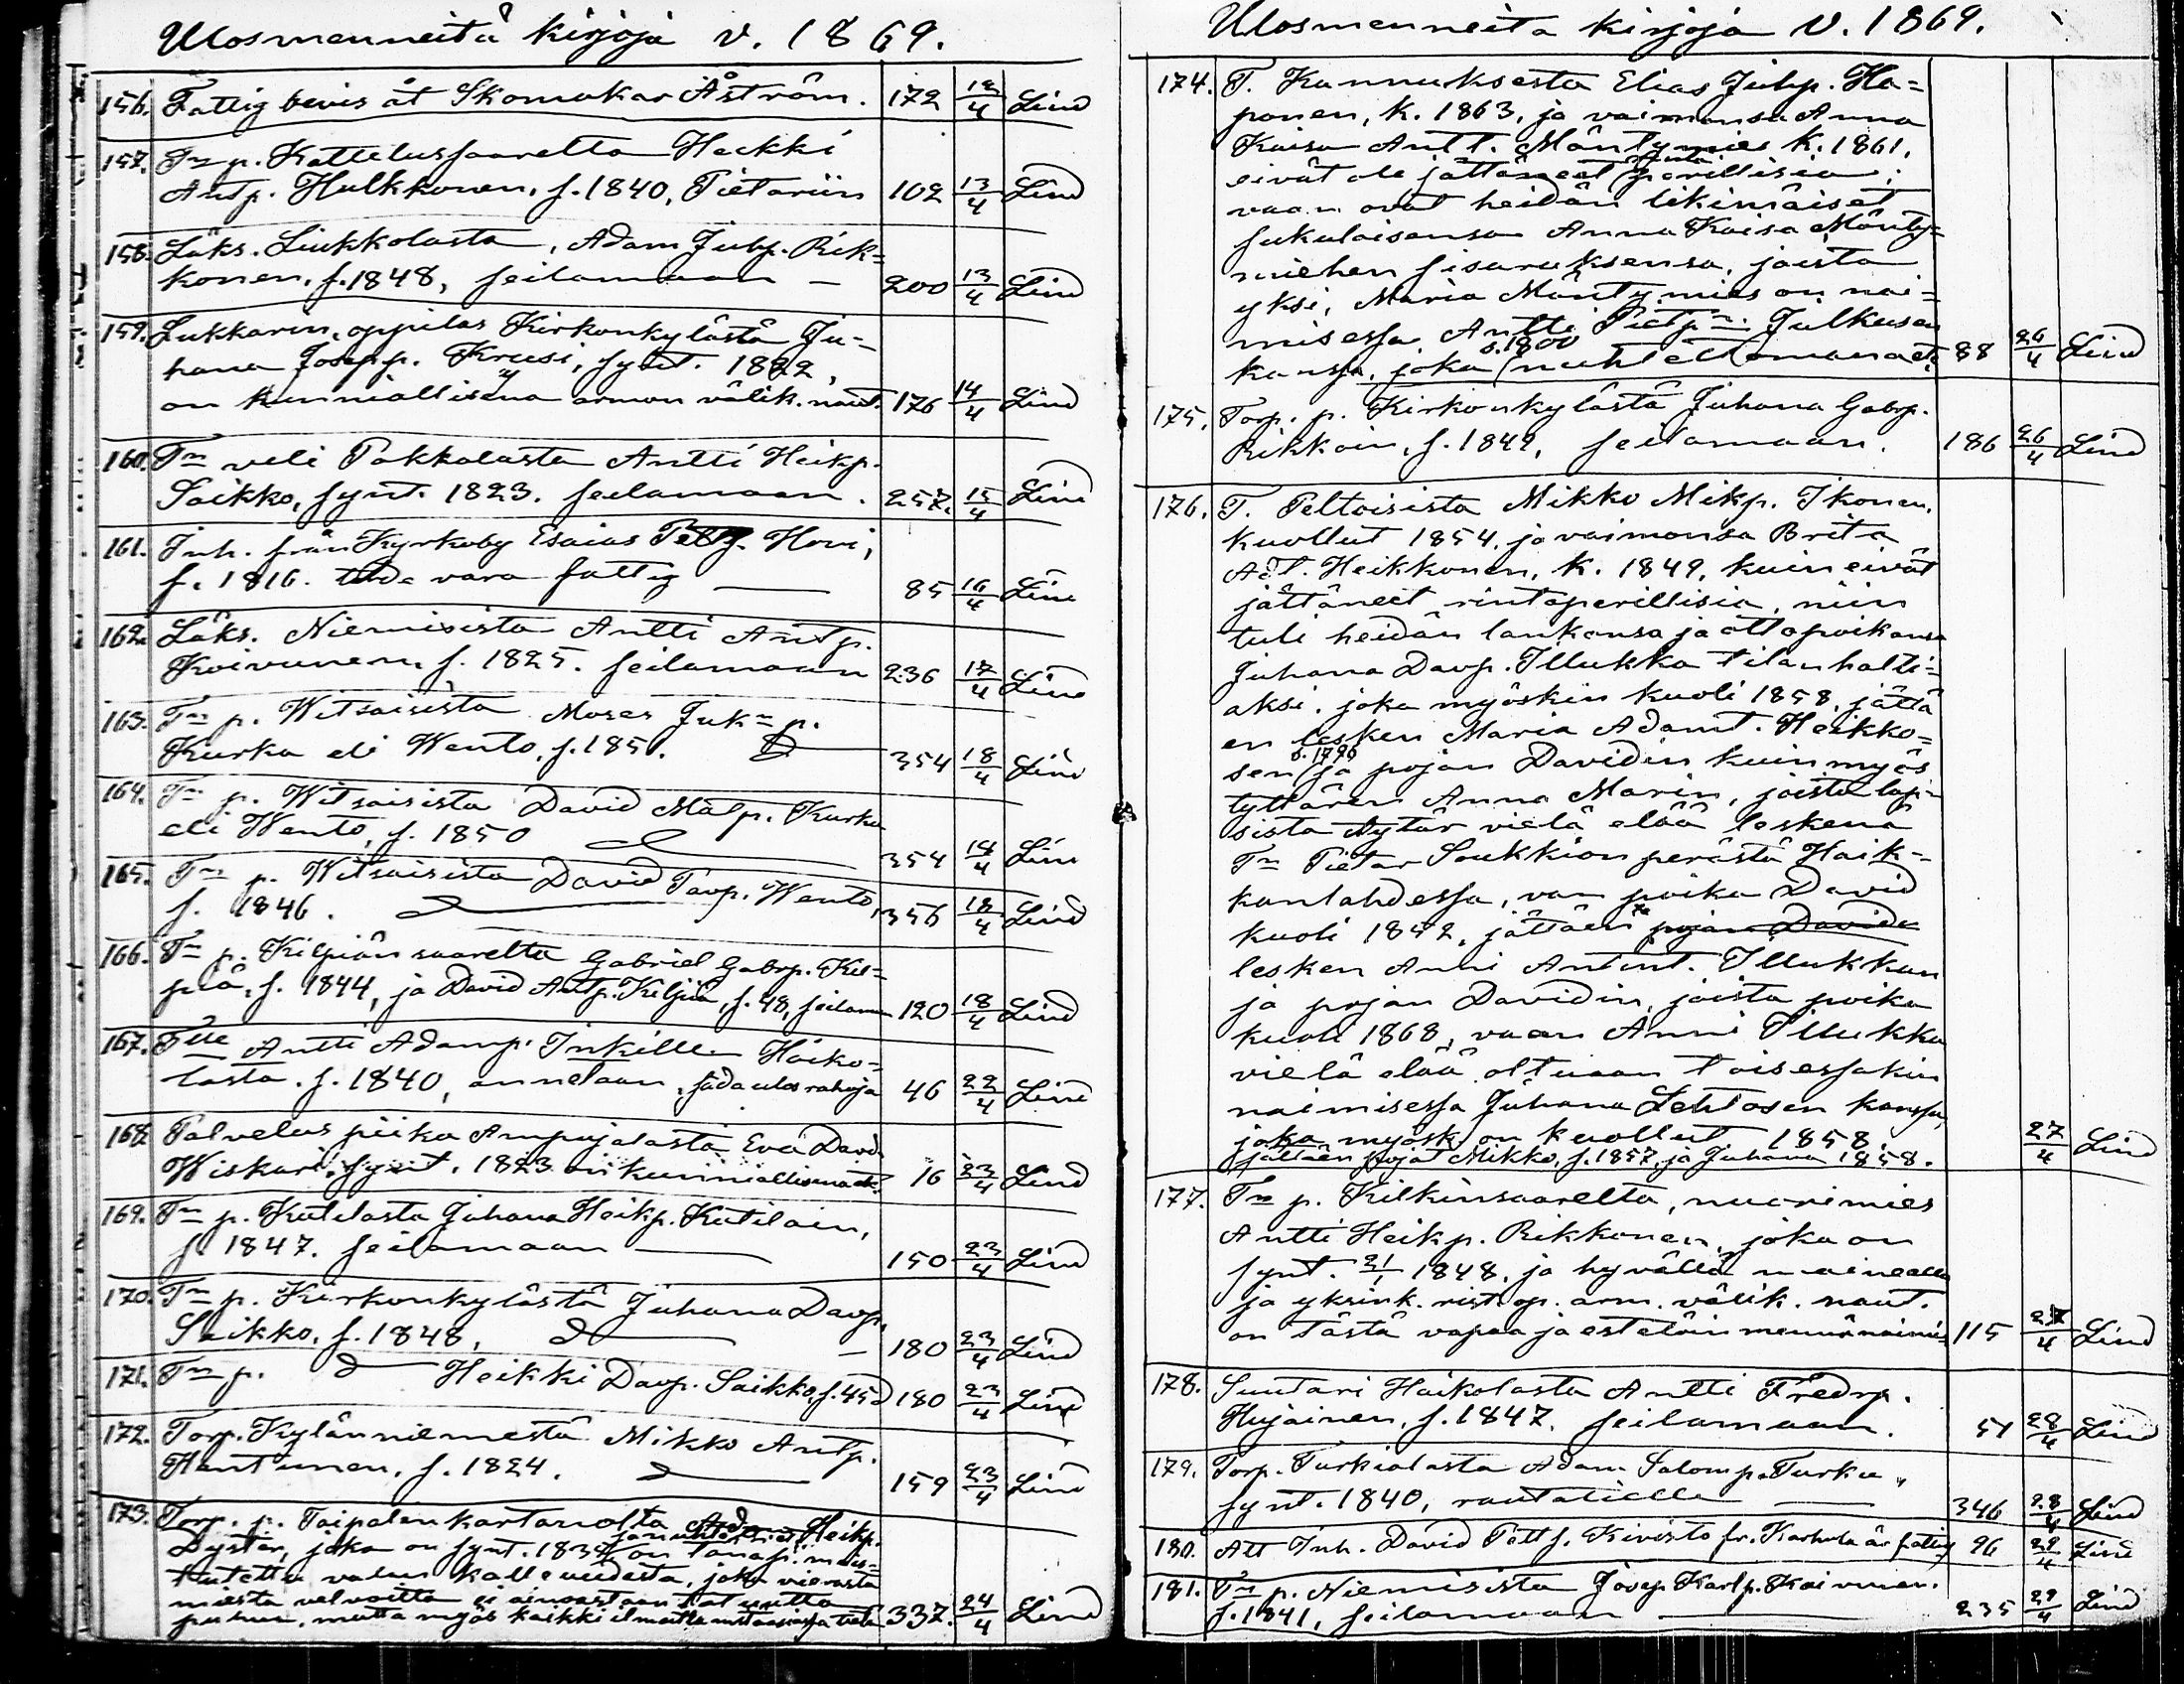 Ulosmenneitä kirjoja v. 1869.
156. Fattig bevis åt Skomakar Åström. 172 12/4 Lind
157. Tn p. Kattelussaarelta Heikki
Antp. Hulkkonen, f. 1840, Pietariin 102 13/4 Lind
158. Läks. Liukkolasta, Adam Juhp. Rik-
konen, f. 1848, seilamaan — 200 13/4 Lind
159. Lukkarin oppilas Kirkonkylästä Ju-
hana Josepp. Kruusi, synt. 1822,
on kunniallisena armon välik. naut. 176 14/4 Lind
160. Tn veli Pakkalasta Antti Heikp.
Saikko, synt. 1823. seilamaan. 257. 15/4 Lind
161. Inh. från Kyrkoby Esaias Petp. Hovi,
f. 1816. vara fattig — 85 16/4 Lind
162. Läks. Niemisistä Antti Antp.
Koivunen, f. 1825. seilamaan 236 17/4 Lind
163. Tn p. Witsaisista Moses Juhn p.
Kurka eli Wento, f. 1851. D— 354 18/4 Lind
164. Tn p. Witsaisista David Matp. Kurka
eli Wento, f. 1850 D— 354 18/4 Lind
165. Tn p. Witsaisista David Pavp. Wento,
f. 1846. D— 356 18/4 Lind
166. Tn p. Kilpiänsaarelta Gabriel Gabrp. Kil-
piä, f. 1844, ja David Antp. Kilpiä, f. 48, seilamn 120 18/4 Lind
167. Antti Adamp. Inkille Haiko-
lasta. f. 1840, annetaan, ulos rahoja 46 22/4 Lind
168. Palvelus piika Ampujalasta Eva David.
Wiskari, synt. 1823 on kunniallisena 16 23/4 Lind
169. Tn p. Kutilasta Juhana Heikp. Kutilain,
f. 1847. seilamaan — 150 23/4 Lind
170. Tn p. Kirkonkylästä Juhana Davp.
Saikko, f. 1848, D— 180 23/4 Lind
171. Tn p. D— Heikki Davp. Saikko, f. 45 D 180 23/4 Lind
172. Torp. Kylänniemestä Mikko Antp.
Hantunen, f. 1824. D— 159 23/4 Lind
173. Torp. p. Taipalen kartanolta Heikp.
Dyster, joka on synt. 183
valan kalleudesta, joka vierasta
miestä velvoitta ei ainoastaan totuutta
puhua, mutta myös kaikki ilmoitta 337. 24/4 Lind
Ulosmenneitä kirjoja v. 1869.
174. T. Kannuksesta Elias Juhp. Ha-
panen, k. 1863, ja vaimonsa Anna
Kaisa Antt. Mäntymies k. 1861,
eivät ole jättäneet rinta perillisiä;
vaan ovat heidän likimäiset
sukulaisensa Anna Kaisa Mänty-
miehen sisaruksensa, joista
yksi, Maria Mäntymies on nai-
misessa Antti Pietp:n Julkusen
s. 1800
kanssa, joka nuhteettomana 88 26/4 Lind
175. Torp. p. Kirkonkylästä Juhana Gabrp.
Rikkoin, f. 1849, seilamaan. 186 26/4 Lind
176. T. Peltoisista Mikko Mikp. Ikonen,
kuollut 1854. ja vaimonsa Brita
Adt. Heikkonen, k. 1849, kuin eivät
jättäneet rintaperillisiä, niin
tuli heidän lankonsa ja ottopoikansa
Juhana Davp. Illukka tilanhalti-
aksi, joka myöskin kuoli 1858, jättä
en lesken Maria Adamt. Heikko-
s. 1796
sen ja pojan Davidin kuin myös
tyttären Anna Marin, joista lap-
sista tytär vielä elää leskenä
Tn Pietar Soukkion perästä Haik-
kanlahdessa, van poika David
kuoli 1842, jättäen pojan Davida
lesken Anni Antint. Illukkan
ja pojan Davidin, joista poika
kuoli 1868, vaan Anni Illukka
vielä elää oltuaan toisessakin
naimisessa Juhana Lehtosen kanssa,
joka myösk. on kuollut 1858.
jättäen pojat Mikko, f. 1857, ja Juhana 1858. 27/4 Lind
177. Tn p. Kilkinsaarelta, nuori mies
Antti Heikp. Rikkonen, joka on
synt. 21/1 1848, ja hyvällä mainealla
ja yksink. rist. op. arm. välik. naut.
on tästä vapaa ja estetöin menn. naimis. 115 27/4 Lind
178. Suutari Haikolasta Antti Fredrp.
Hujainen, f. 1847. seilamaan. 51 28/4 Lind
179. Torp. Turkialasta Adam Salomp. Turkia,
synt. 1840, rautatielle — 346 28/4 Lind
180. Att Inh. David Petts. Kivistö fr. Karhula är fattig 96 29/4 Lind
181. Tn p. Niemisistä Josep Karlp. Koivunen.
f. 1841, seilamaan — 235 29/4 Lind